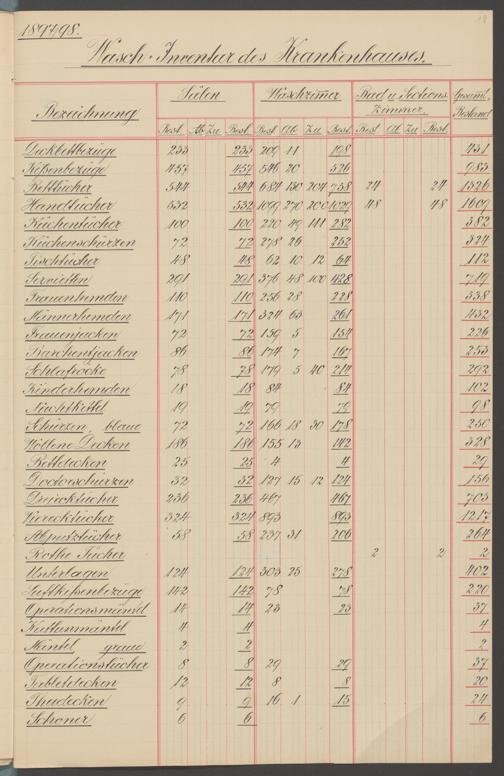 1897/98.
Wasch-Inventur des Krankenhauses.
Bezeichnung Sälen Waschzimer Bad u. Sections Zimmer. Gesamt Bestand
Best. Ab Zu Best. Best. Ab Zu Best. Best. Ab Zu Best.
Deckbettbezüge 233 233 209 11 198 431
Kißenbezüge 457 457 546 20 526 983
Betttücher 544 544 684 130 204 758 24 24 1326
Handtücher 532 532 1099 270 200 1029 48 48 1609
Küchentücher 100 100 220 49 111 282 382
Küchenschürzen 72 72 278 26 252 324
Tischtücher 48 48 62 10 12 64 112
Servietten 291 291 376 48 100 428 719
Frauenhemden 110 110 256 28 228 338
Männerhemden 171 171 324 63 261 432
Frauenjacken 72 72 159 5 154 226
Barchentjacken 86 86 174 7 167 253
Schlafröcke 78 78 179 5 40 214 292
Kinderhemden 18 18 84 84 102
Nachtkittel 19 19 79 79 98
Schürzen, blaue 72 72 166 18 30 178 250
Wollene Decken 186 186 155 13 142 328
Bettdecken 25 25 4 4 29
Doctorschürzen 32 32 127 15 12 124 156
Dreiecktücher 236 236 467 467 703
Vierecktücher 324 324 893 893 1217
Abputztücher 58 58 237 31 206 264
Rothe Tücher 2 2 2
Unterlagen 124 124 303 25 278 402
Luftkißenbezüge 142 142 78 78 220
Operationsmäntel 14 14 23 23 37
Kattunmäntel 4 4 4
Mäntel, graue 2 2 2
Operationstücher 8 8 29 29 37
Tabletdecken 12 12 8 8 20
Theedecken 9 9 16 1 15 24
Schoner 6 6 6